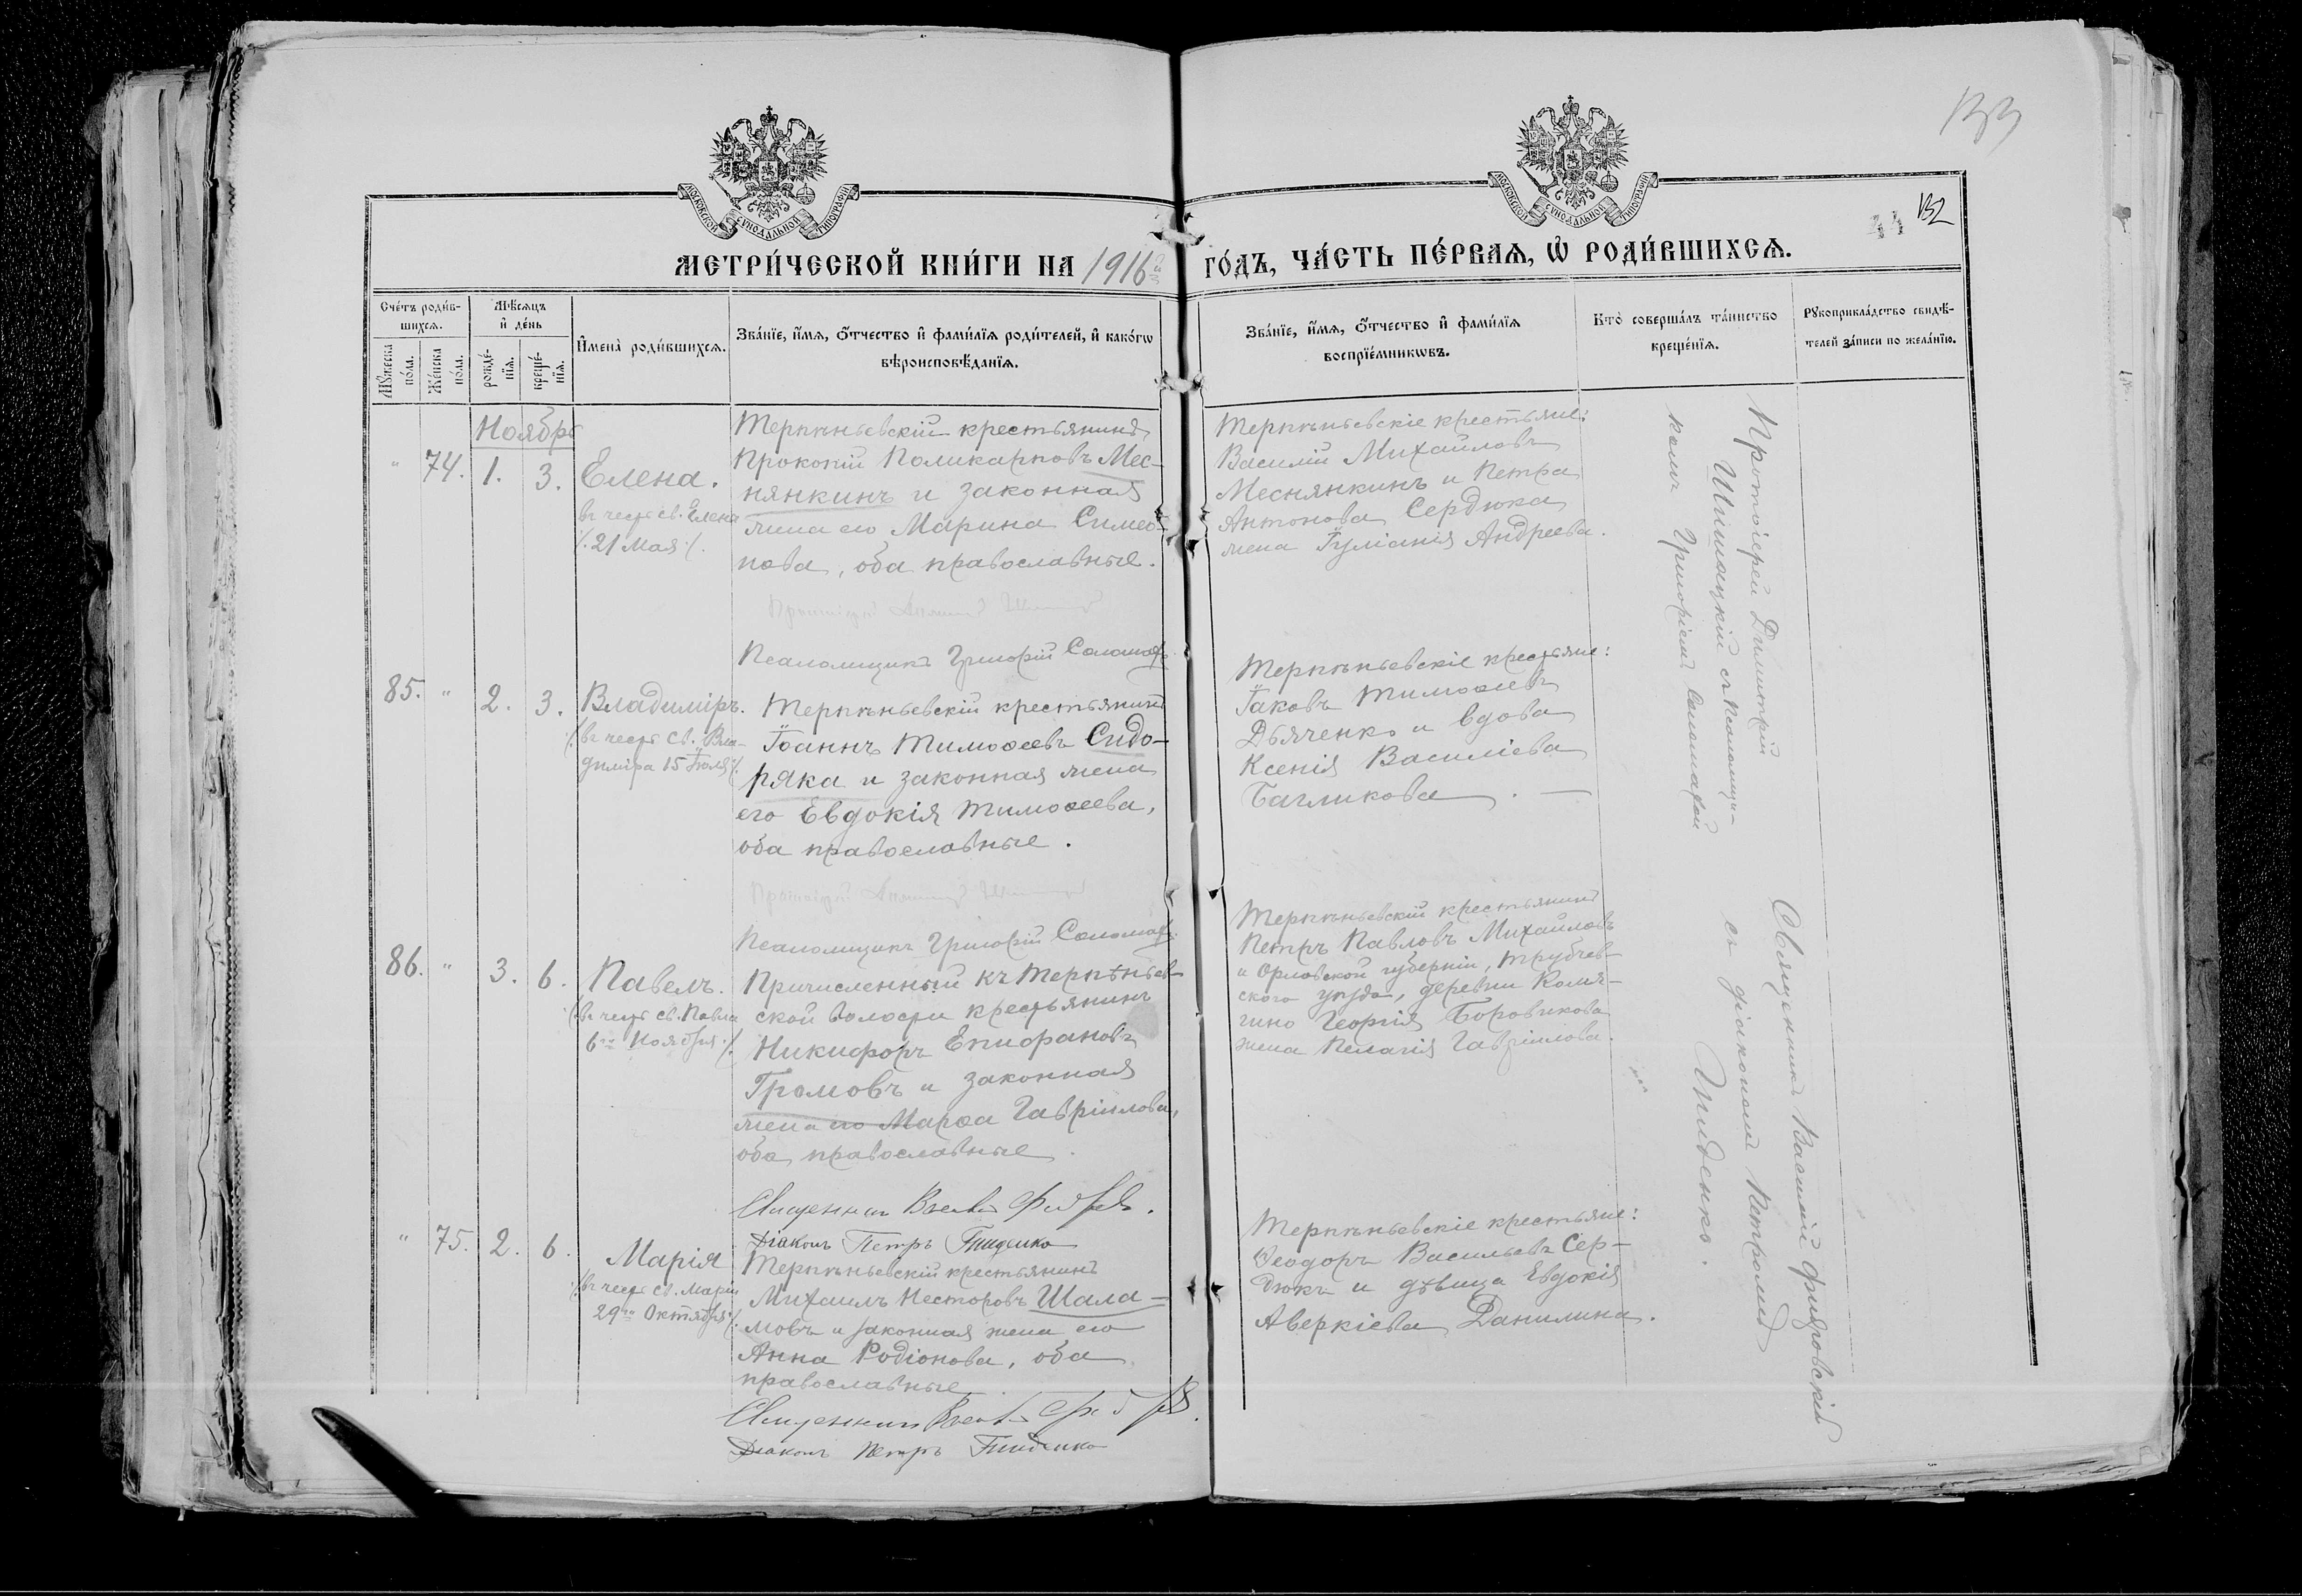 133
МОСКОВСКОЙ СѴНОДАЛЬНОЙ ТИПОГРАФІИ
МОСКОВСКОЙ СѴНОДАЛЬНОЙ ТИПОГРАФІИ
44 132
МЕТРИ́ЧЕСКОЙ КНИ́ГИ НА 1916й ГО́ДЪ, ЧА́СТЬ ПЕ́РВАЯ, Ѡ РОДИ́ВШИХСЯ.
Сче́тъ роди́в-
шихся.
Мꙋ́жеска
по́ла.
Же́нска
по́ла.
Мѣ́сяцъ
и҆ де́нь
рожде́-
нїя.
креще́-
нїя.
И҆мена̀ роди́вшихся.
Зва́нїе, и҆́мя, ѻ҆́тчество и҆ фами́лїя роди́телей, и҆ како́гѡ
вѣроисповѣ́данїя.
Зва́нїе, и҆́мя, ѻ҆́тчество и҆ фами́лїя
воспрїе́мникѡвъ.
Кто̀ соверша́лъ та́инство
креще́нїя.
Рꙋкоприкла́дство свидѣ́-
телей за́писи по жела́нїю.
Ноябрь
" 74. 1. 3.
Елена.
въ честь св. Елены
/. 21 Мая ./.
Терпѣньевскій крестьянинъ
Прокопій Поликарповъ Мес-
нянкинъ и законная
жена его Марина Симео-
нова, оба православные.
Псаломщикъ Григорій
Терпѣньевскіе крестьяне:
Василій Михайловъ
Меснянкинъ и Петра
Антонова Сердюка
жена Іуліанія Андреева.
Протоіерей Димитрій
Шишацкій съ псаломщи-
комъ Григоріемъ
85. " 2. 3.
Владиміръ.
/. въ честь св. Вла-
диміра 15 Іюля ./.
Терпѣньевскій крестьянинъ
Іоаннъ Тимоѳеевъ Сидо-
ряка и законная жена
его Евдокія Тимоѳеева,
оба православные.
Псаломщикъ Григорій
Терпѣньевскіе крестьяне:
Іаковъ Тимоѳеевъ
Дьяченко и вдова
Ксенія Василіева
Багликова. —
86. " 3. 6.
Павелъ.
/. въ честь св. Павла
6го Ноября ./.
Причисленный къ Терпѣньев-
ской волости крестьянинъ
Никифоръ Епифановъ
Громовъ и законная
жена его Марѳа Гавріилова,
оба православные.
Священникъ
Діаконъ Петръ Гниденко
Терпѣньевскій крестьянинъ
Петръ Павловъ Михайловъ
и Орловской губерніи, Трубчев-
ского уѣзда, деревни Коля-
гино Георгія Боровикова
жена Пелагія Гавріилова.
Священникъ Василій
съ діакономъ Петромъ
Гниденко.
" 75. 2. 6.
Марія
/. въ честь св. Маріи
29го Октября ./.
Терпѣньевскій крестьянинъ
Михаилъ Несторовъ Шала-
мовъ и законная жена его
Анна Родіонова, оба
православные.
Священникъ
Діаконъ Петръ Гниденко
Терпѣньевскіе крестьяне:
Ѳеодоръ Васильевъ Сер-
дюкъ и дѣвица Евдокія
Аверкіева Данилина.